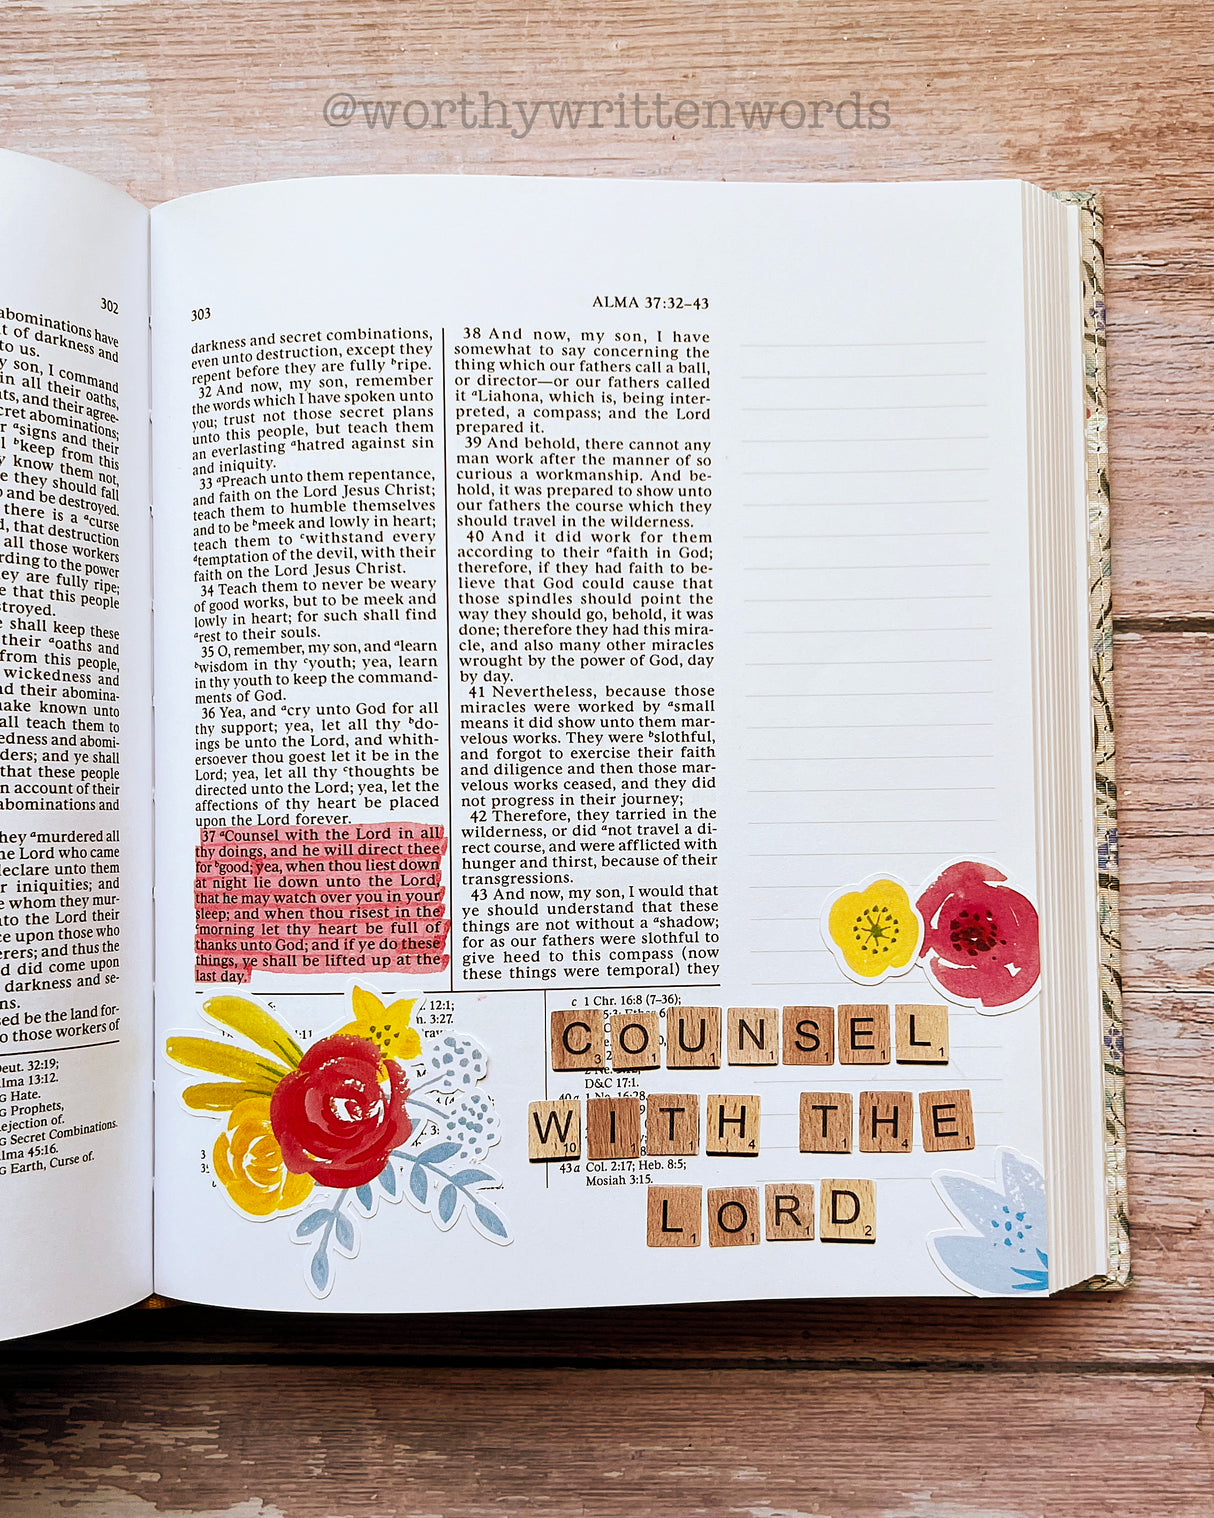 @worthywrittenwords
302
abominations have
t of darkness and
to us.
y son, I command
in all their oaths,
ts, and their agree-
cret abominations;
r ᵃsigns and their
l ᵇkeep from this
y know them not,
e they should fall
and be destroyed.
there is a ᵃcurse
d, that destruction
all those workers
rding to the power
ey are fully ripe;
e that this people
stroyed.
e shall keep these
their ᵃoaths and
from this people,
wickedness and
nd their abomina-
make known unto
all teach them to
edness and abomi-
ders; and ye shall
that these people
n account of their
abominations and
hey ᵃmurdered all
he Lord who came
declare unto them
r iniquities; and
e whom they mur-
to the Lord their
ce upon those who
erers; and thus the
d did come upon
darkness and se-
ns.
sed be the land for-
o those workers of
Deut. 32:19;
lma 13:12.
G Hate.
G Prophets,
ejection of.
G Secret Combinations.
lma 45:16.
G Earth, Curse of.
303
ALMA 37:32–43
darkness and secret combinations,
even unto destruction, except they
repent before they are fully ᵇripe.
32 And now, my son, remember
the words which I have spoken unto
you; trust not those secret plans
unto this people, but teach them
an everlasting ᵃhatred against sin
and iniquity.
33 ᵃPreach unto them repentance,
and faith on the Lord Jesus Christ;
teach them to humble themselves
and to be ᵇmeek and lowly in heart;
teach them to ᶜwithstand every
ᵈtemptation of the devil, with their
faith on the Lord Jesus Christ.
34 Teach them to never be weary
of good works, but to be meek and
lowly in heart; for such shall find
ᵃrest to their souls.
35 O, remember, my son, and ᵃlearn
ᵇwisdom in thy ᶜyouth; yea, learn
in thy youth to keep the command-
ments of God.
36 Yea, and ᵃcry unto God for all
thy support; yea, let all thy ᵇdo-
ings be unto the Lord, and whith-
ersoever thou goest let it be in the
Lord; yea, let all thy ᶜthoughts be
directed unto the Lord; yea, let the
affections of thy heart be placed
upon the Lord forever.
37 ᵃCounsel with the Lord in all
thy doings, and he will direct thee
for ᵇgood; yea, when thou liest down
at night lie down unto the Lord,
that he may watch over you in your
sleep; and when thou risest in the
ᶜmorning let thy heart be full of
thanks unto God; and if ye do these
things, ye shall be lifted up at the
last day.
38 And now, my son, I have
somewhat to say concerning the
thing which our fathers call a ball,
or director—or our fathers called
it ᵃLiahona, which is, being inter-
preted, a compass; and the Lord
prepared it.
39 And behold, there cannot any
man work after the manner of so
curious a workmanship. And be-
hold, it was prepared to show unto
our fathers the course which they
should travel in the wilderness.
40 And it did work for them
according to their ᵃfaith in God;
therefore, if they had faith to be-
lieve that God could cause that
those spindles should point the
way they should go, behold, it was
done; therefore they had this mira-
cle, and also many other miracles
wrought by the power of God, day
by day.
41 Nevertheless, because those
miracles were worked by ᵃsmall
means it did show unto them mar-
velous works. They were ᵇslothful,
and forgot to exercise their faith
and diligence and then those mar-
velous works ceased, and they did
not progress in their journey;
42 Therefore, they tarried in the
wilderness, or did ᵃnot travel a di-
rect course, and were afflicted with
hunger and thirst, because of their
transgressions.
43 And now, my son, I would that
ye should understand that these
things are not without a ᵃshadow;
for as our fathers were slothful to
give heed to this compass (now
these things were temporal) they
12:1;
3:27.
3:
c 1 Chr. 16:8 (7–36);
D&C 17:1.
43a Col. 2:17; Heb. 8:5;
Mosiah 3:15.
COUNSEL
WITH THE
LORD